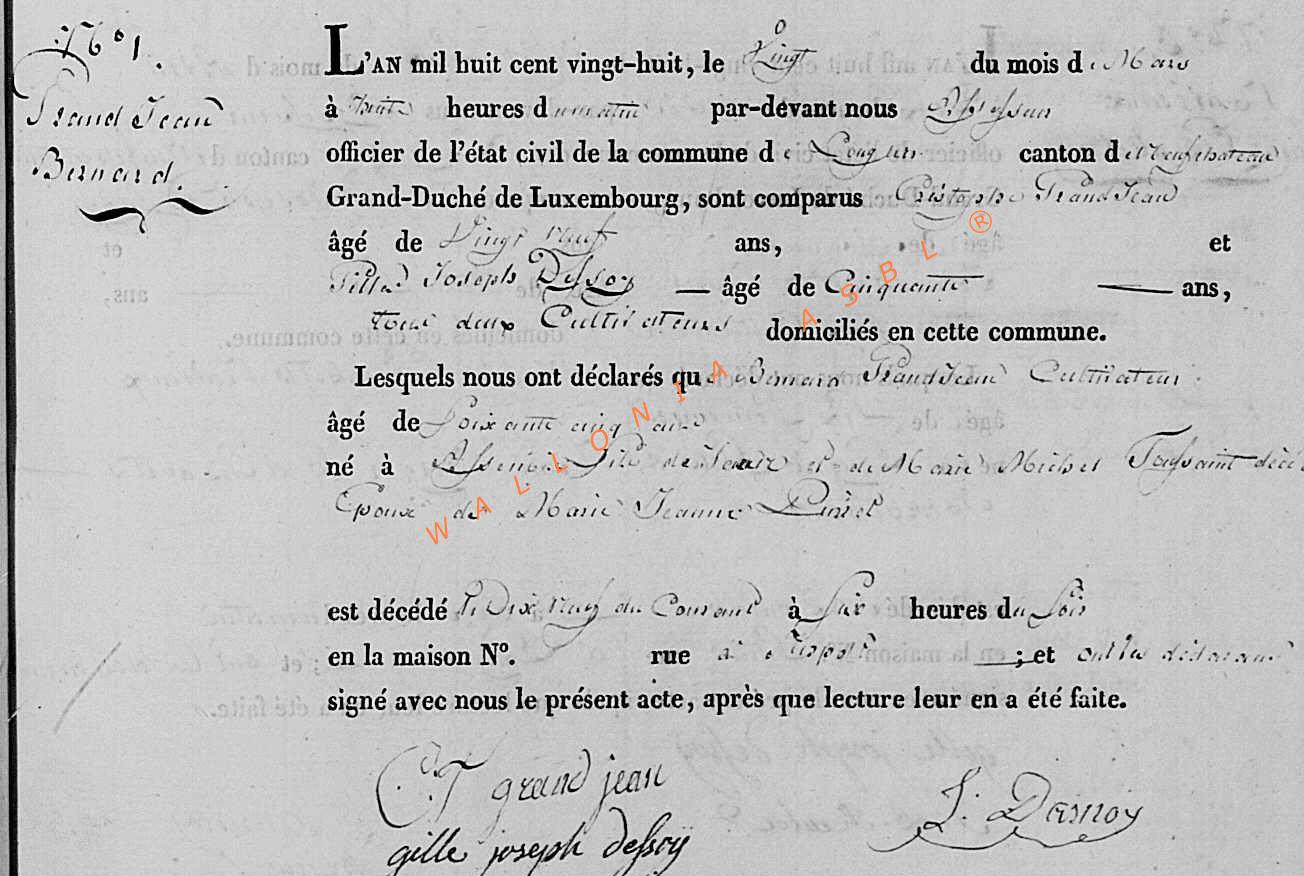 N° 1.
Grand Jean
Bernard.
L'AN mil huit cent vingt-huit, le Vingt du mois de Mars
à huit heures du matin par-devant nous
officier de l'état civil de la commune de canton de Neufchateau
Grand-Duché de Luxembourg, sont comparus Cristophe Grand Jean
âgé de Vingt neuf ans, et
Gille Joseph Dessoy — âgé de Cinquante — ans,
tous deux Cultivateurs domiciliés en cette commune.
Lesquels nous ont déclarés que Bernard Grand Jean Cultivateur
âgé de Soixante cinq ans
né à Assenois fils de Jean et de Marie Michel Tassaint
Epoux de Marie Jeanne
est décédé le Dix neuf du Courant à Six heures du Soir
en la maison N°. rue à ; et ont les déclarans
signé avec nous le présent acte, après que lecture leur en a été faite.
C T grand jean
gille joseph dessoÿ
WALLONIA ASBL ®